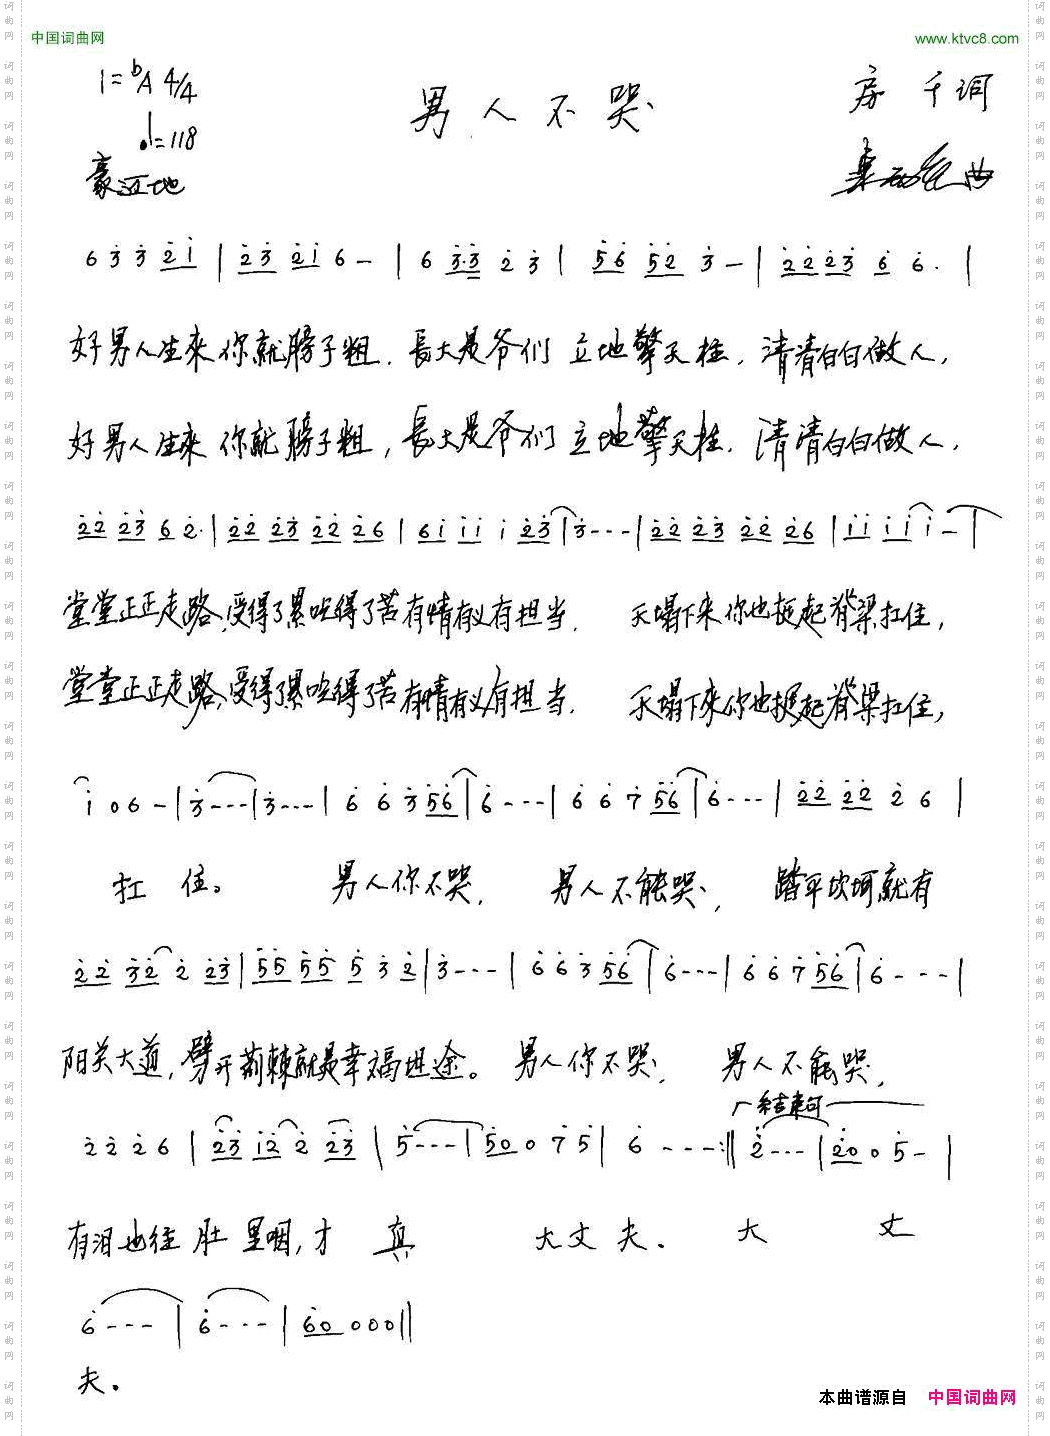 中国词曲网 www.ktvc8.com
1=bA 4/4 男人不哭 房 千词
♩=118
豪迈地 曲
6 3 3 2 1 | 2 3 2 1 6 – | 6 3·3 2 3 | 5 6 5 2 3 – | 2 2 2 3 6 6· |
好男人生來你就膀子粗.長大是爷们 立地擎天柱,清清白白做人,
好男人生來你就膀子粗,長大是爷们 立地擎天柱.清清白白做人,
2 2 2 3 6 2· | 2 2 2 3 2 2 2 6 | 6 1 1 1 1 2 3 | 3 - - - | 2 2 2 3 2 2 2 6 | 1 1 1 1 1 – |
堂堂正正走路,受得了累吃得了苦有情有义有担当. 天塌下来你也挺起脊梁扛住,
堂堂正正走路,受得了累吃得了苦有情有义有担当. 天塌下来你也挺起脊梁扛住,
1 0 6 – | 3 - - - | 3 - - - | 6 6 3 5 6 | 6 - - - | 6 6 7 5 6 | 6 - - - | 2 2 2 2 2 6 |
扛 住。 男人你不哭, 男人不能哭, 踏平坎坷就有
2 2 3 2 2 2 3 | 5 5 5 5 5 3 2 | 3 - - - | 6 6 3 5 6 | 6 - - - | 6 6 7 5 6 | 6 - - - |
阳关大道,劈开荆棘就是幸福坦途。男人你不哭, 男人不能哭,
结束句
2 2 2 6 | 2 3 1 2 2 2 3 | 5 - - - | 5 0 0 7 5 | 6 - - - :‖ 2 - - - | 2 0 0 5 – |
有泪也往肚里咽,才 真 大丈夫. 大 丈
6 - - - | 6 - - - | 6 0 0 0 0 ‖
夫。
本曲谱源自 中国词曲网